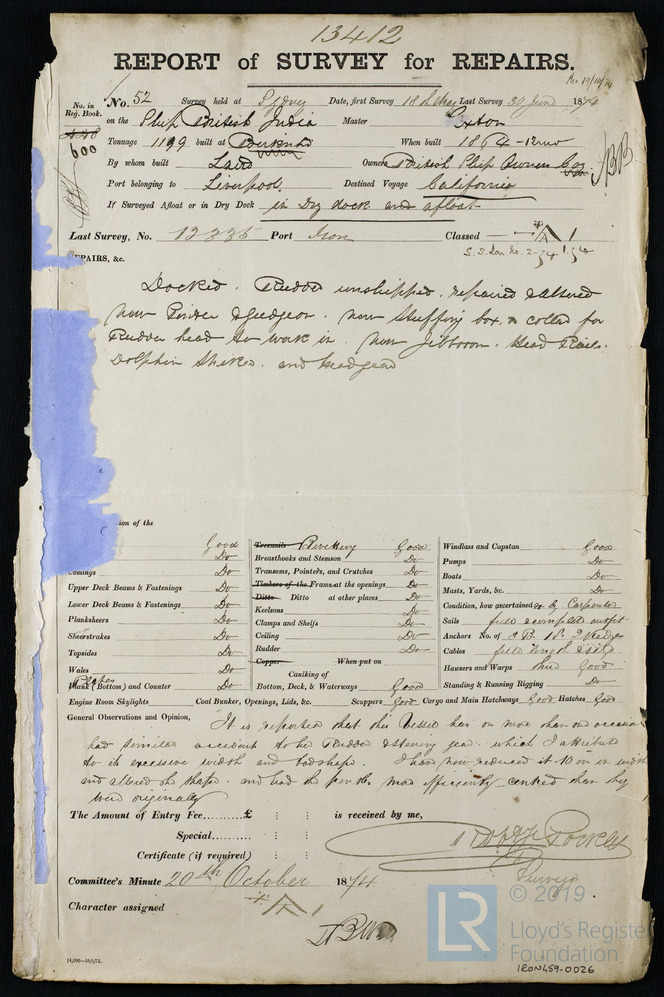 13412
REPORT of SURVEY for REPAIRS.
Rec 10/10/74
No. in Reg. Book. No. 52 Survey held at Sydney Date, first Survey 18th May Last Survey 30 June 1874
600 on the Ship British India Master
Tonnage 1199 built at Birkenhd When built 1864
By whom built Laird Owners British Ship Owners Coy
Port belonging to Liverpool Destined Voyage California
If Surveyed Afloat or in Dry Dock in Dry dock and afloat
Last Survey, No. 12235 Port Iron Classed A 1
S.S. Lon No. 2-74
REPAIRS, &c.
Docked. Rudder unshipped, repaired & altered
new Pintles & Gudgeon. new Stuffing box, & collar for
Rudder head to work in. new Jibboom. Head Rails.
Dolphin Striker. and headgear
ion of the
Good
Do
Comings Do
Upper Deck Beams & Fastenings Do
Lower Deck Beams & Fastenings Do
Planksheers Do
Sheerstrakes Do
Topsides Do
Wales Do
Plates
Plank (Bottom) and Counter Do
Treenails Rivetting Good
Breasthooks and Stemson Do
Transoms, Pointers, and Crutches Do
Timbers of the Frame at the openings Do
Ditto Ditto at other places Do
Keelsons Do
Clamps and Shelfs Do
Ceiling Do
Rudder Do
Copper When put on
Caulking of
Bottom, Deck, & Waterways Good
Windlass and Capstan Good
Pumps Do
Boats Do
Masts, Yards, &c. Do
Condition, how ascertained ex by Carpenter
Sails full & complete outfit
Anchors No. of 3 B. 1 S. 2 Kedges
Cables full length & size
Hawsers and Warps Good
Standing & Running Rigging Do
Engine Room Skylights Coal Bunker, Openings, Lids, &c. Scuppers Good Cargo and Main Hatchways Good Hatches Good
General Observations and Opinion, It is reported that this Vessel has on more than one occasion
had similar account to the Rudder & steering gear which I attribute
to its excessive width and bad shape. I have now reduced it 10 in in width
and altered the shape. and had the pintles more efficiently centred than they
were originally
The Amount of Entry Fee ........ £ : : is received by me,
Special ........ : :
Certificate (if required) : : Pockley
Surveyor
Committee's Minute 20th October 1874
Character assigned A 1
14,000—10/6/72.
© 2019
LR
Lloyd's Register
Foundation
IRON459-0026